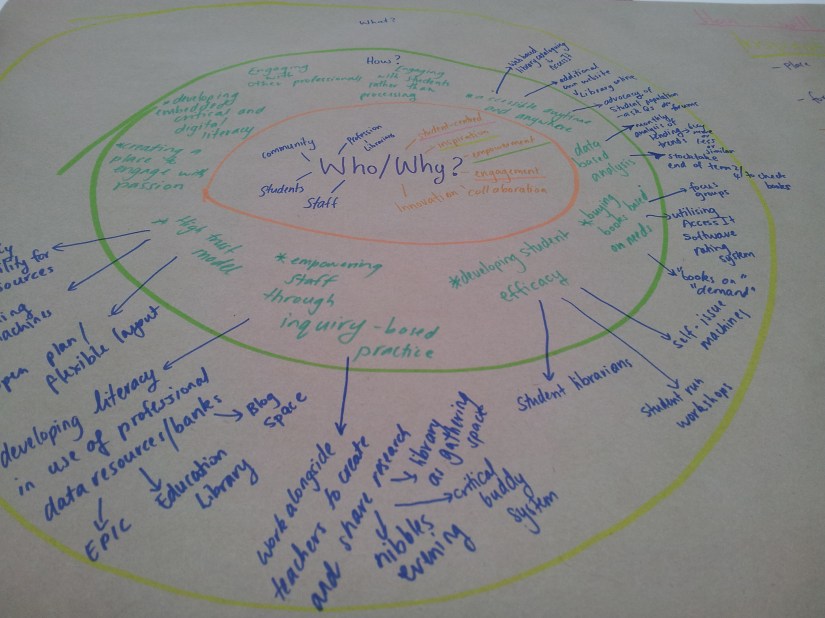 What?
How?
Engaging
with
other professionals
Engaging
with students
rather than
processing
*developing
embedded
critical and
digital
literacy
*creating a
place to
engage with
passion
* High trust
model
*empowering
staff
through
inquiry-based
practice
*developing student
efficacy
*buying
books based
on needs
data
based
analysis
*accessible anytime
and anywhere
Who/Why?
Community
Profession
Libraries
Students
Staff
student-centred
inspiration
empowerment
engagement
collaboration
innovation
additional
own website
advocacy of
student population
monthly
analysis of
lending - key
trends less
similar
stocktake
end of term 2/4 to check
books
focus
groups
utilising
Access It
Software
rating
system
"books on
demand"
self-issue
machines
student run
workshops
student librarians
open plan/
flexible layout
developing literacy
in use of professional
data resources/banks
Blog
space
Education
Library
EPIC
work alongside
teachers to create
and share research
library
as gathering
space
critical
buddy
system
nibbles
evening
- Place